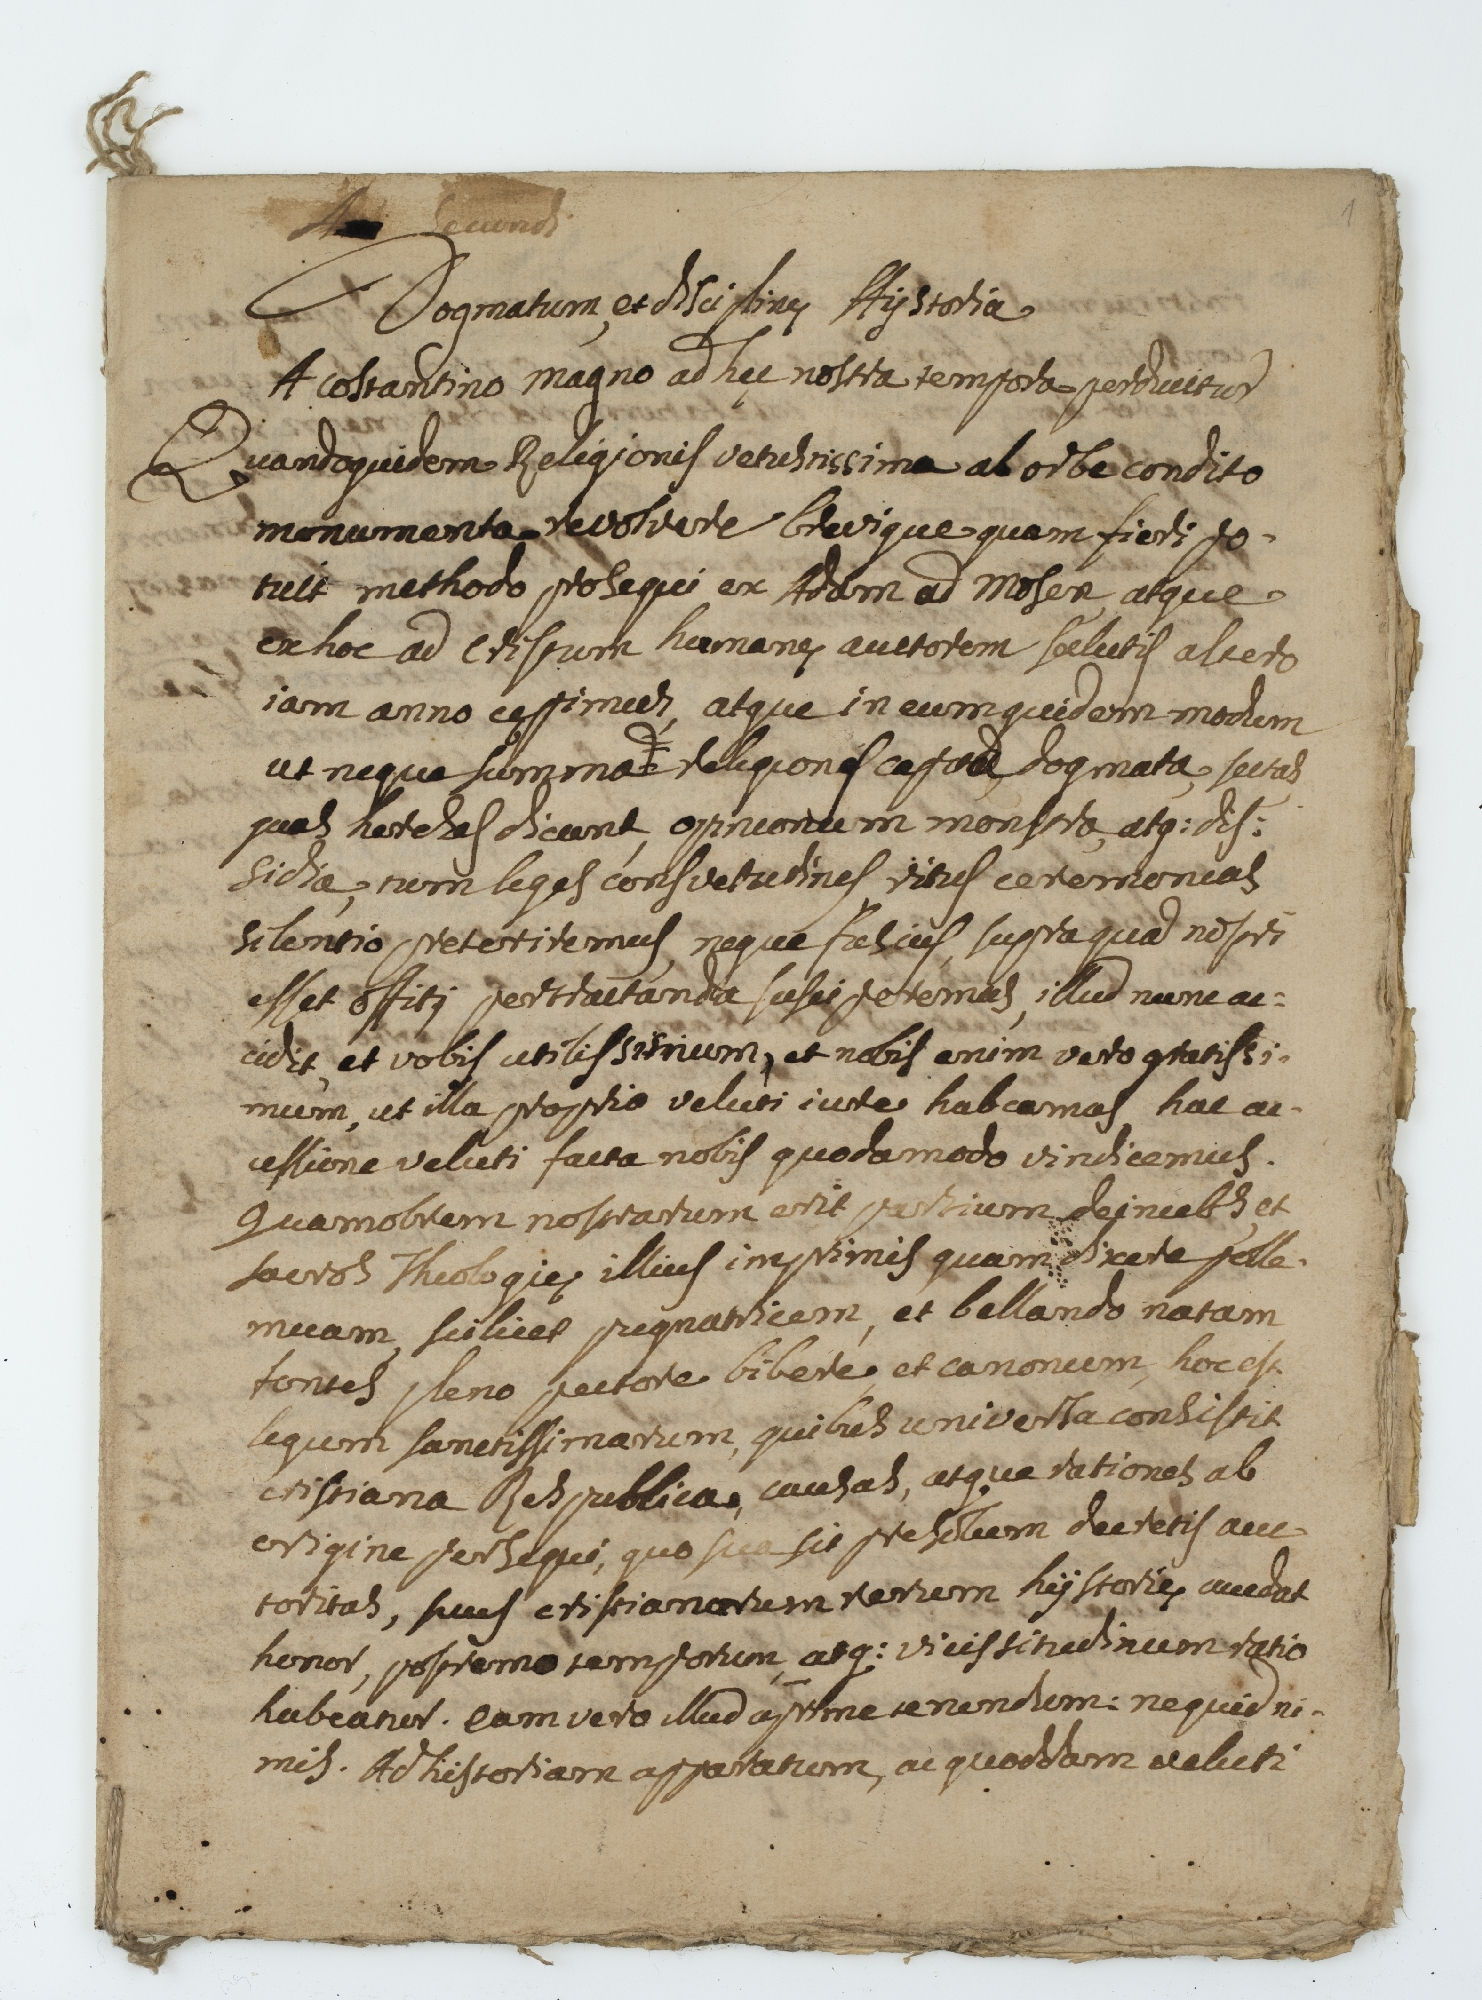 1
Secundi
Dogmatum, et disciplinę Hystoria
A costantino magno ad hęc nostra tempora perducitur
Quandoquidem Religionis vetustissima ab orbe condito
monumenta revolvere brevique quam fieri po-
tuit methodo prosequi ex Adam ad Mosen, atque
ex hoc ad Cristum humanę auctorem salutis altero
iam anno cessimus, atque in eum quidem modum
ut neque summa religionis capita, dogmata, sectas
quas hereses dicunt, opinionum monstra, atq: dis:
sidia, tum leges consvetudines ritus ceremonias
silentio preteriremus, neque fusius, supra quad nostri
esset offitij pertractanda susciperemus, illud nunc ac:
cidit, et vobis utilissimum, et nobis enim vero gratissi-
mum, ut illa proprio veluti iure habeamas hac ac-
cessione veluti facta nobis quodamodo vindicemus.
Quamobrem nostrarum erit partium et
sacros Theologię illius imprimis quam dixere polle-
micam, scilicet pugnatricem, et bellando natam
fontes pleno pectore bibere, et canonum, hoc est
legum sanctissimarum, quibus universa consistit
cristiana Respublica, causas, atque rationes ab
origine persequi, quo sua sit decretis auc
toritas, suus cristianorum rerum hystorię accedat
honor, postremo temporum, atq: vicissitudinum ratio
habeatur. eam vero illud apprime tenendum: nequid ni-
mis. Ad historiam apparatum, ac quoddam veluti